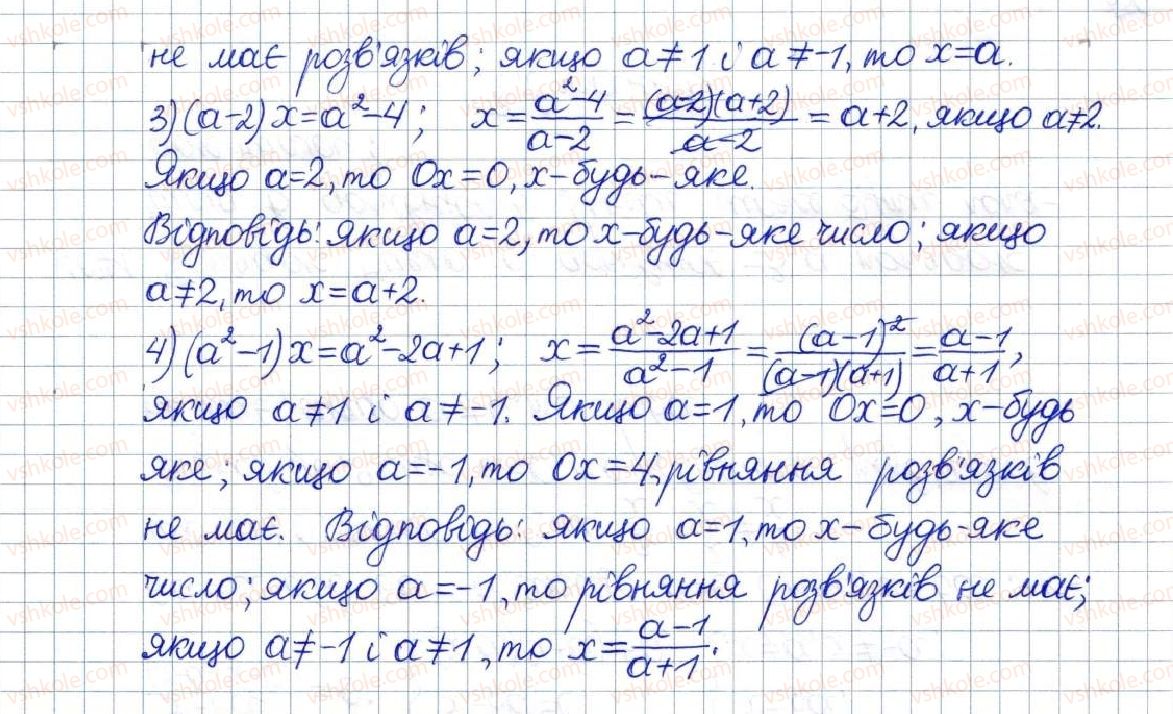 не має розв'язків; якщо a≠1 і a≠-1, то x=a.
3) (a-2)x=a²-4; x=(a²-4)/(a-2)=((a-2)(a+2))/(a-2)=a+2, якщо a≠2.
Якщо a=2, то 0x=0, x-будь-яке.
Відповідь: якщо a=2, то x-будь-яке число; якщо
a≠2, то x=a+2.
4) (a²-1)x=a²-2a+1; x=(a²-2a+1)/(a²-1)=(a-1)²/((a-1)(a+1))=(a-1)/(a+1),
якщо a≠1 і a≠-1. Якщо a=1, то 0x=0, x-будь
яке; якщо a=-1, то 0x=4, рівняння розв'язків
не має. Відповідь: якщо a=1, то x-будь-яке
число; якщо a=-1, то рівняння розв'язків не має;
якщо a≠-1 і a≠1, то x=(a-1)/(a+1).